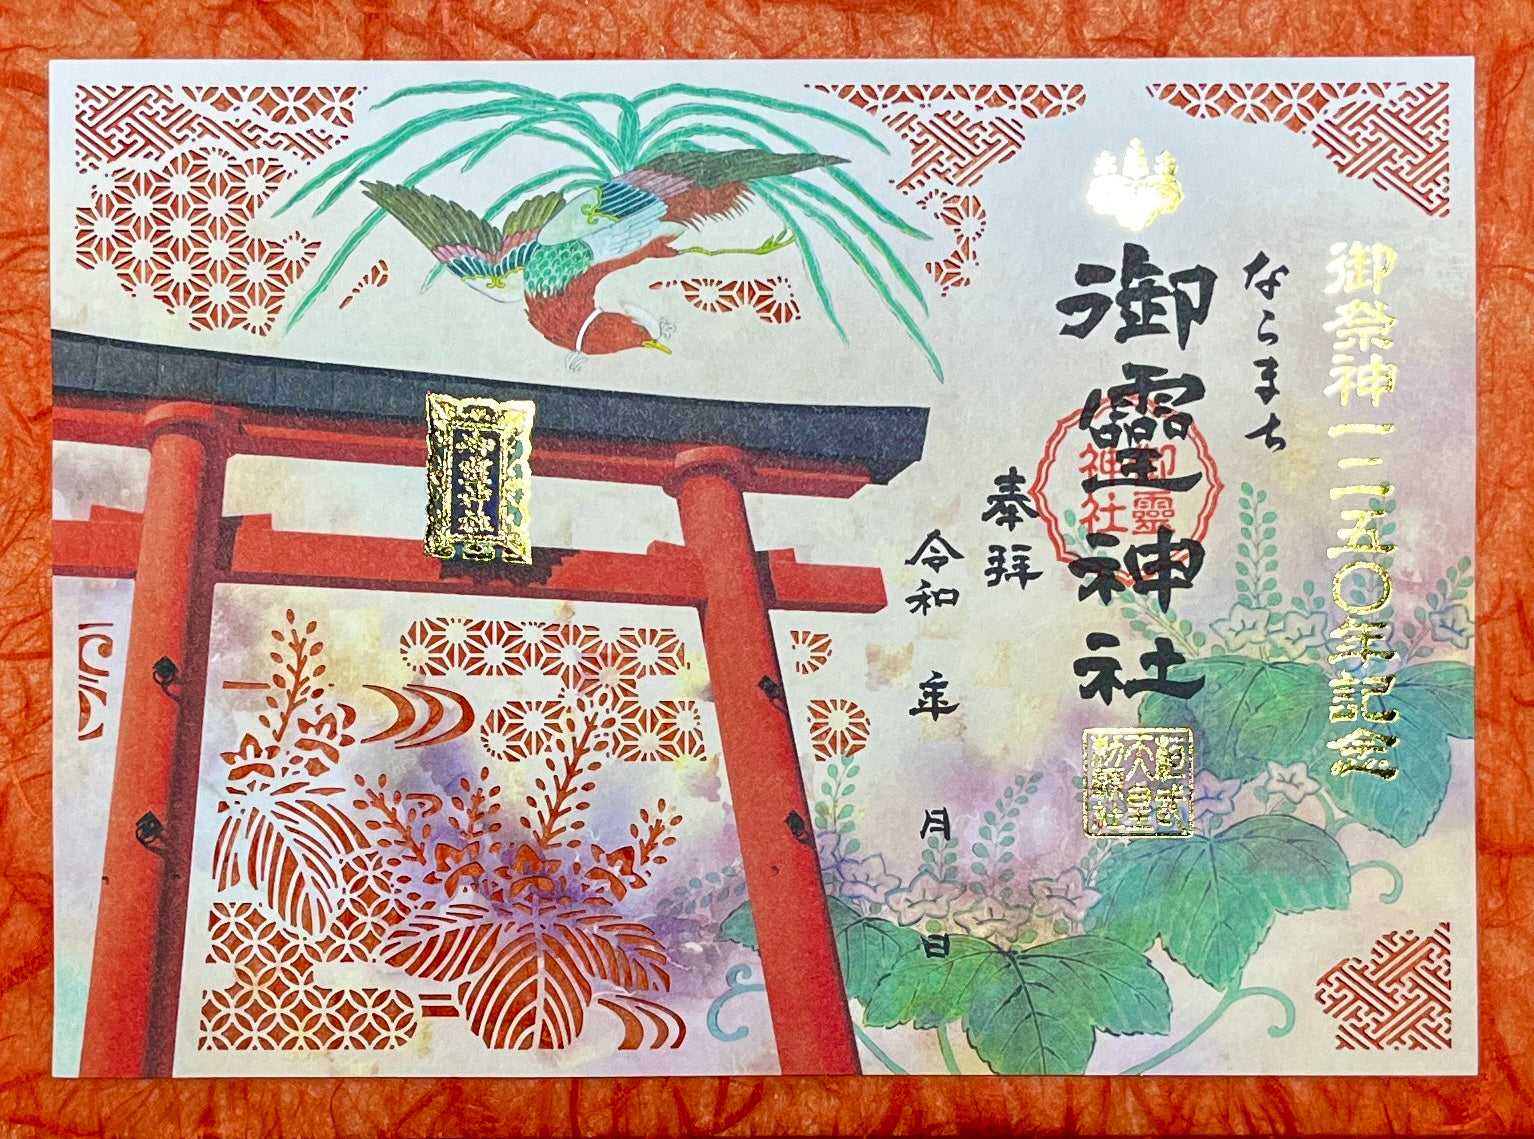 御祭神一二五〇年記念
ならまち
御靈神社
御靈
神社
桓武
天皇
奉拝
令和 年 月 日